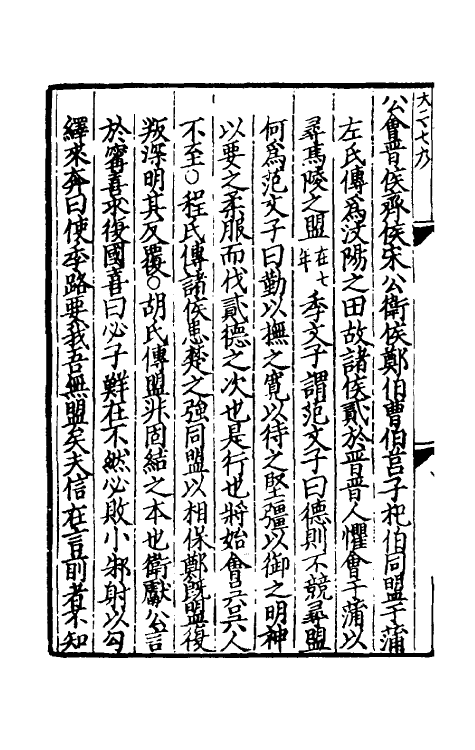 公會晉侯齊侯宋公衛侯鄭伯曹伯莒子杞伯同盟于蒲
左氏傳爲汶陽之田故諸侯貳於晉晉人懼會于蒲以
尋馬陵之盟在七年季文子謂范文子曰德則不競尋盟
何爲范文子曰勤以撫之寬以待之堅彊以御之明神
以要之柔服而伐貳德之次也是行也將始會吳吳人
不至○程氏傳諸侯患楚之強同盟以相保鄭既盟復
叛深明其反覆○胡氏傳盟非固結之本也衛獻公言
於甯喜求復國喜曰必子鮮在不然必敗小邾射以勾
繹來奔曰使季路要我吾無盟矣夫信在言前者不知